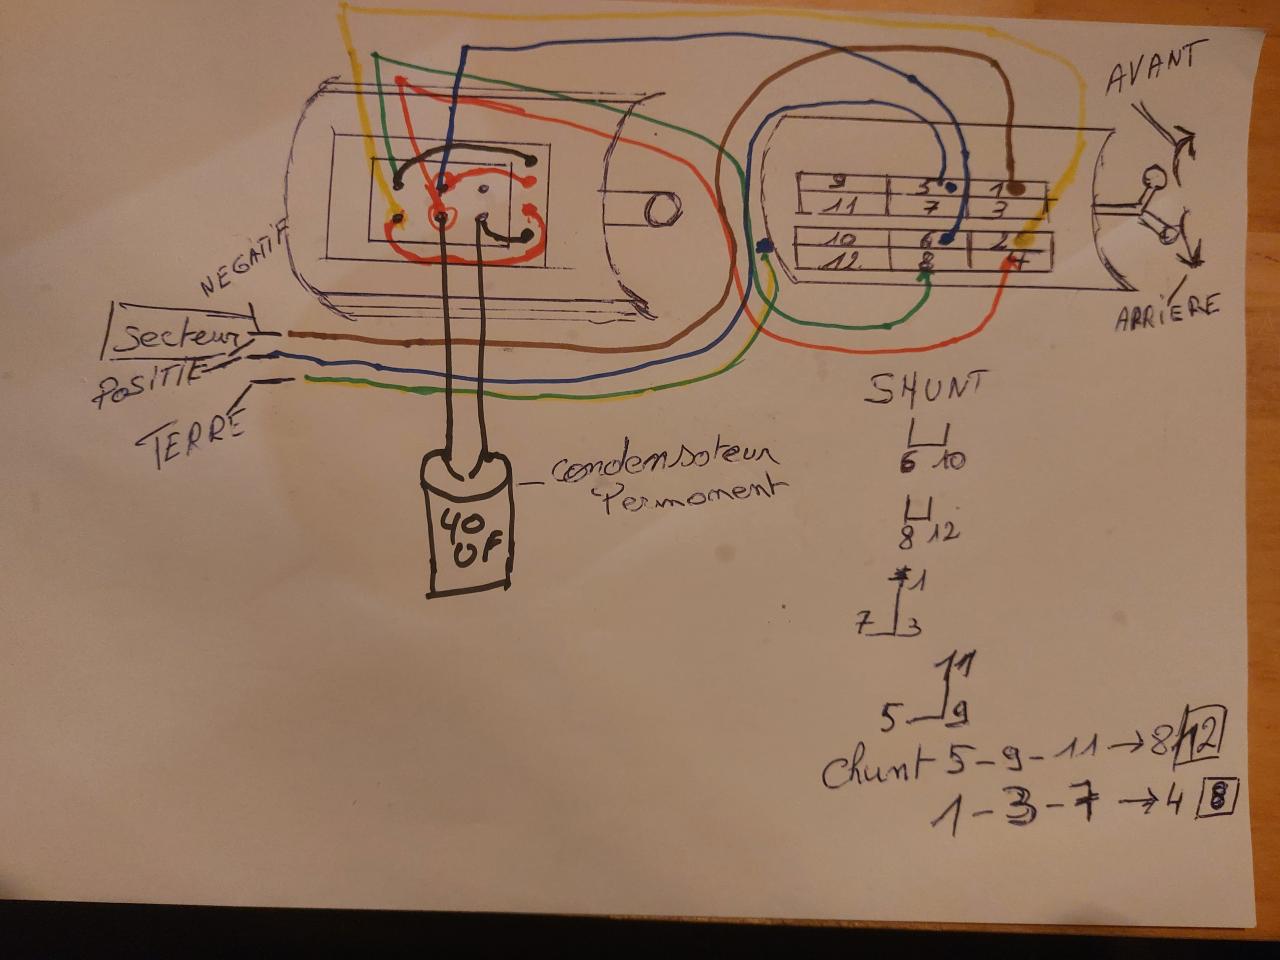 AVANT
9 5 1
11 7 3
10 6 2
12 8 4
ARRIERE
NEGATIF
Secteur
POSITIF
TERRE
condensateur
Permanent
40
UF
SHUNT
6 10
8 12
1
7 3
11
5 9
Chunt 5-9-11 → 8 12
1-3-7 → 4 8